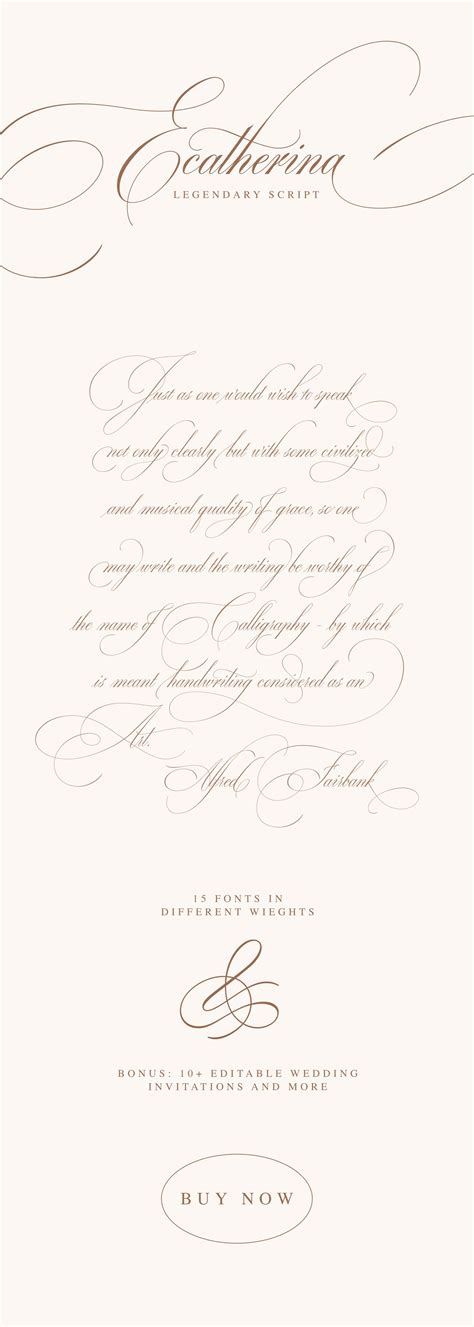 Ecatherina
LEGENDARY SCRIPT
Just as one would wish to speak
not only clearly but with some civilized
and musical quality of grace, so one
may write and the writing be worthy of
the name of Calligraphy - by which
is meant handwriting considered as an
Art.
Alfred Fairbank
15 FONTS IN
DIFFERENT WIEGHTS
&
BONUS: 10+ EDITABLE WEDDING
INVITATIONS AND MORE
BUY NOW